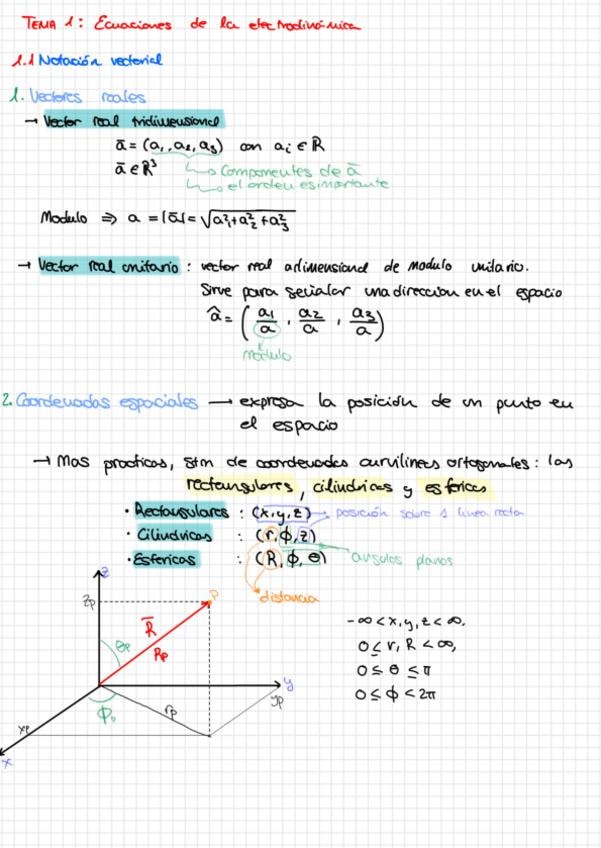 TEMA 1: Ecuaciones de la electrodinámica
1.1 Notación vectorial
1. Vectores reales
→ Vector real tridimensional
ā = (a₁, a₂, a₃) con aᵢ ∈ R
ā ∈ R³
↳ Componentes de ā
↳ el orden es importante
Modulo ⇒ a = |ā| = √(a₁² + a₂² + a₃²)
→ Vector real unitario: vector real adimensional de modulo unitario.
Sirve para señalar una direccion en el espacio
â = (a₁/a, a₂/a, a₃/a)
modulo
2. Coordenadas espaciales → expresa la posición de un punto en
el espacio
→ Mas practicas, stm de coordenadas curvilineas ortogonales: las
rectangulares, cilíndricas y esfericas
• Rectangulares : (x, y, z) → posición sobre 1 linea recta
• Cilíndricas : (r, ϕ, z)
• Esfericas : (R, ϕ, θ) angulos planos
distancia
z
zₚ
P
R̄
Rₚ
θₚ
y
yₚ
rₚ
ϕₚ
xₚ
x
-∞ < x, y, z < ∞,
0 ≤ r, R < ∞,
0 ≤ θ ≤ π
0 ≤ ϕ < 2π